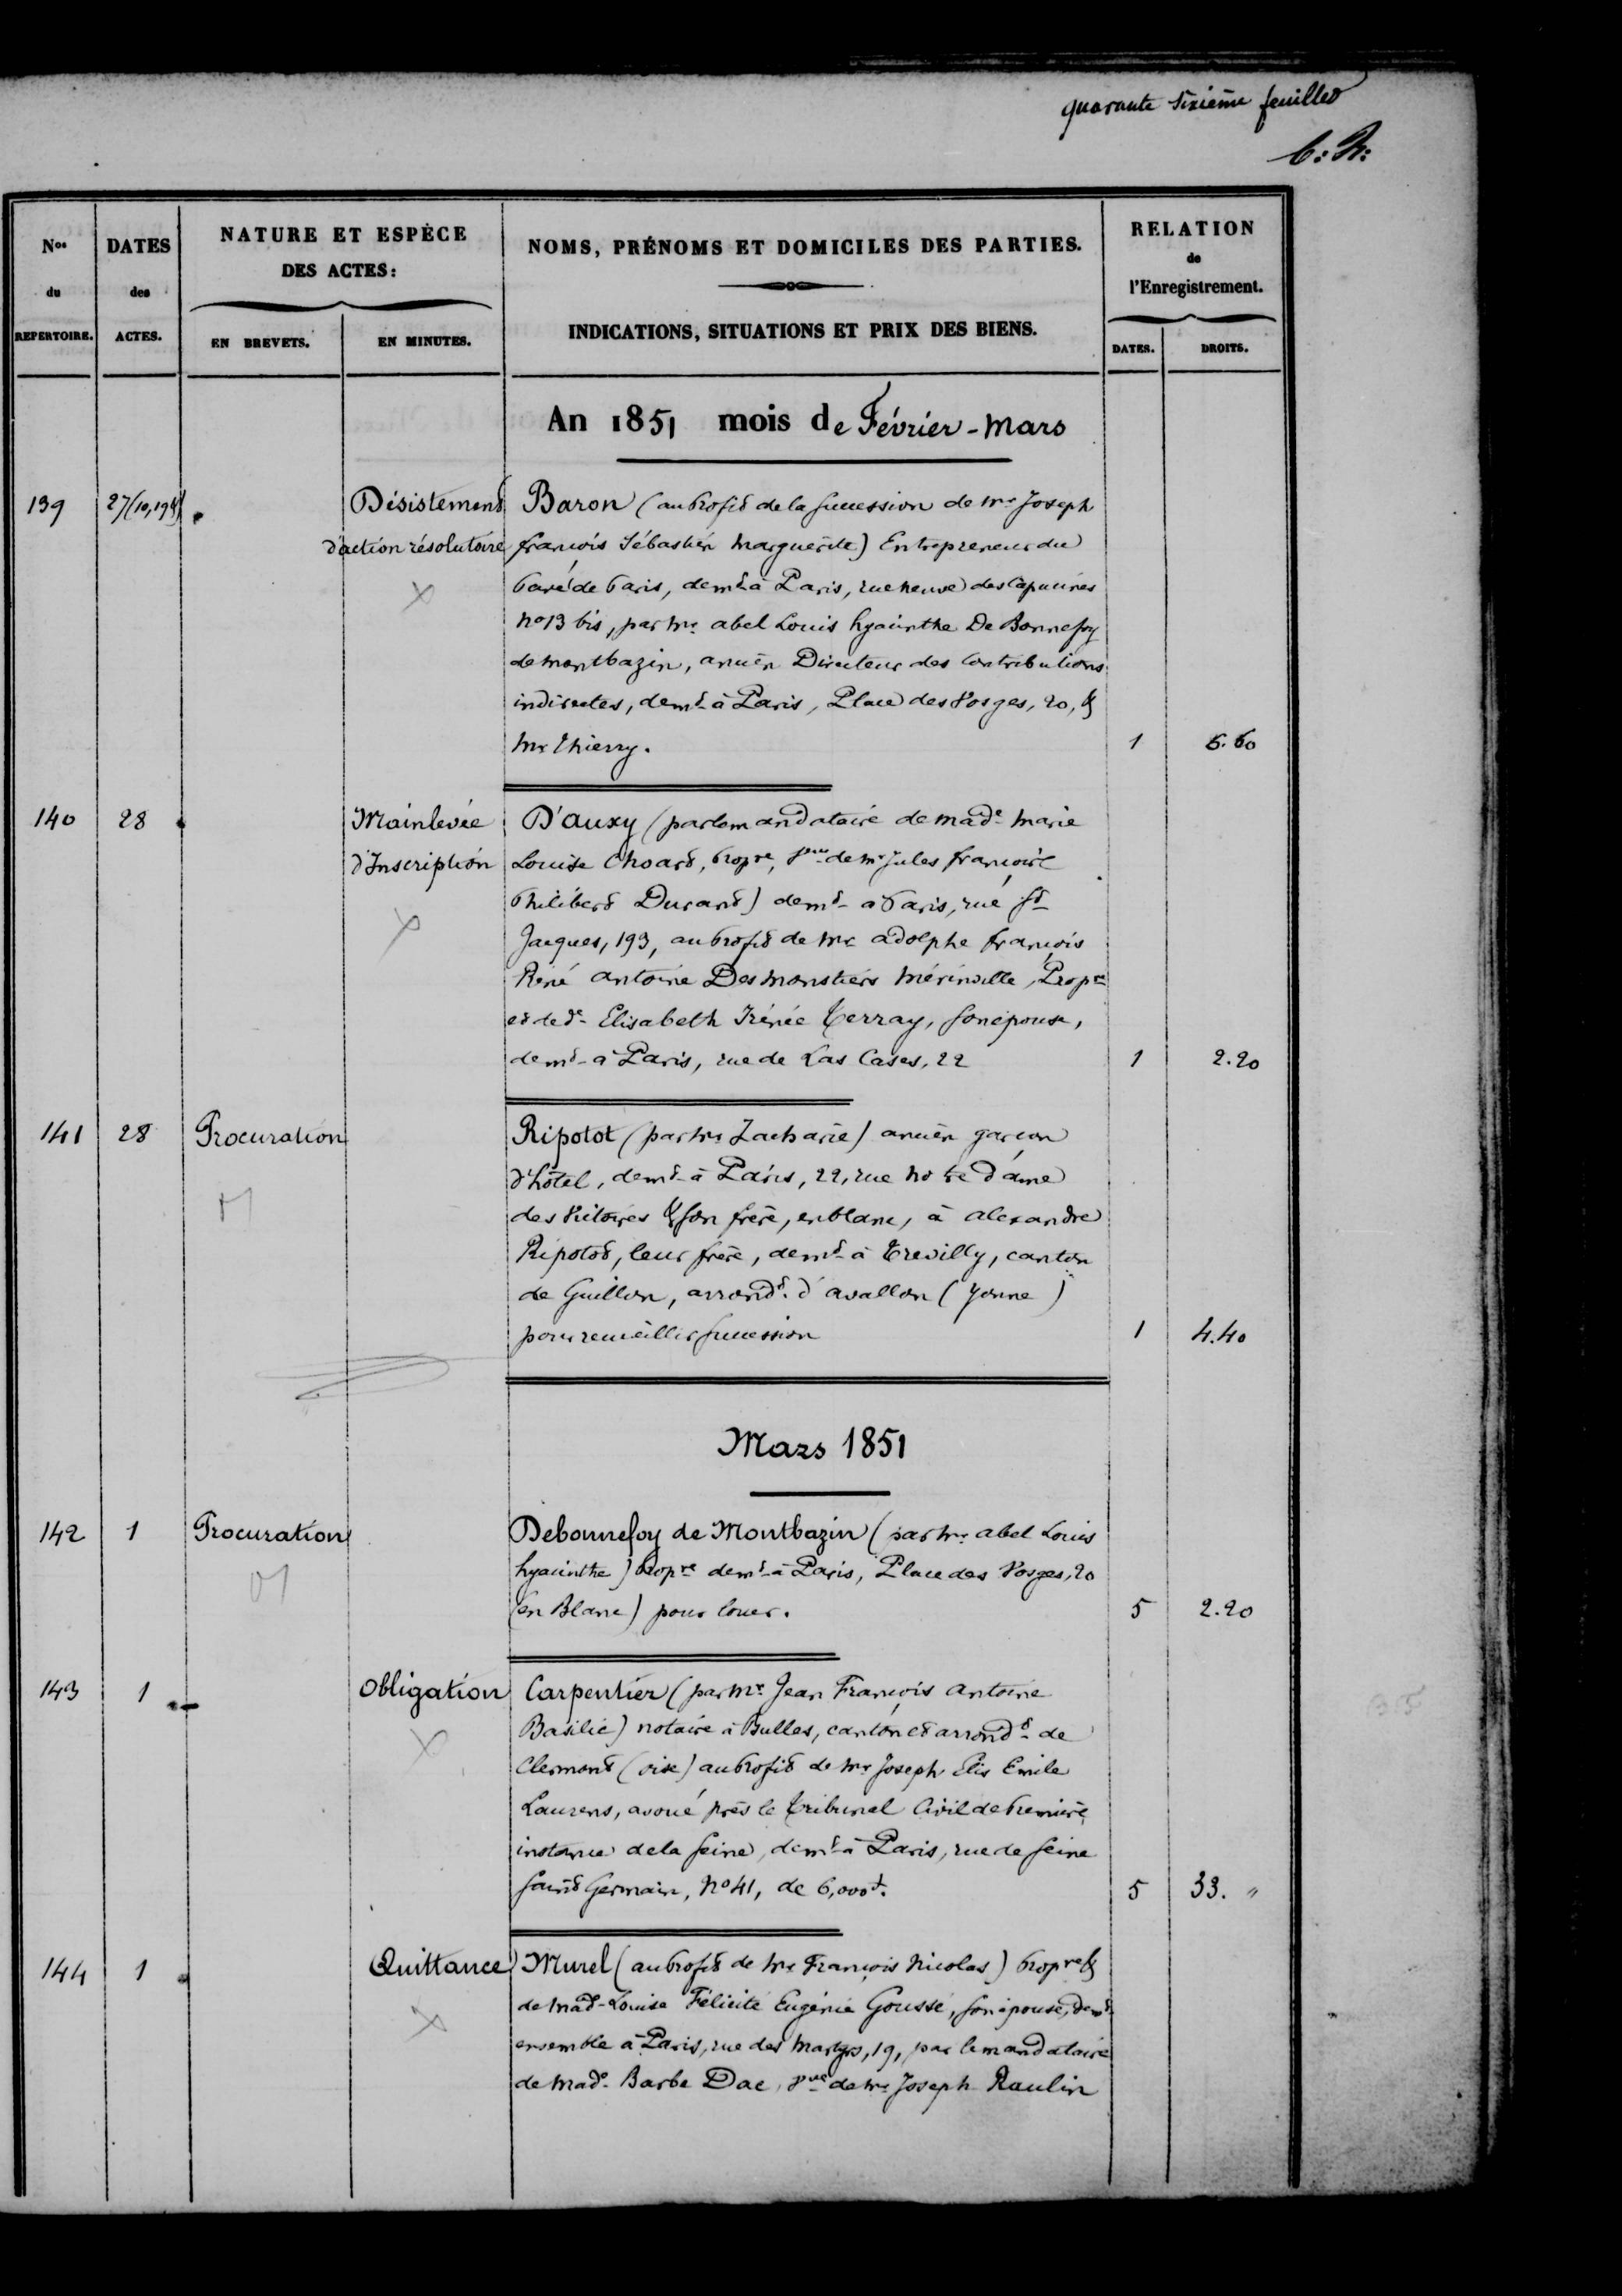 quarante sixième feuillet
C: R:
Nos du REPERTOIRE.
DATES des ACTES.
NATURE ET ESPÈCE DES ACTES:
EN BREVETS.
EN MINUTES.
NOMS, PRÉNOMS ET DOMICILES DES PARTIES.
INDICATIONS, SITUATIONS ET PRIX DES BIENS.
RELATION de l'Enregistrement.
DATES.
DROITS.
An 1851 mois de Février - Mars
139 27 (10, 19 Désistement Baron (au profit de la succession de Mr. Joseph
d'action résolutoire françois Sébastien Marguerite) Entrepreneur du
pavé de Paris, demt à Paris, rue neuve des Capucines
No 13 bis, par Mr. abel Louis hyacinthe De Bonnefoy
de montbazin, ancien Directeur des Contributions
indirectes, demt à Paris, Place des Vosges, 20, &
Mr Thierry. 1 6.60
140 28 Mainlevée D'auxy (par le mandataire de Made Marie
d'Inscription Louise Choard, propre, Vve de Mr Jules françois
Philibert Durand) demt à Paris, rue St
Jacques, 193, au profit de Mr adolphe françois
René antoine Des Monstiers Mérinville, Propre
et de De Elisabeth Irénée Terray, son épouse,
demt à Paris, rue de Las Cases, 22 1 2.20
141 28 Procuration Ripotot (par Mr Zacharie) ancien garçon
d'hôtel, demt à Paris, 22, rue Notre dame
des Victoires & son frère, en blanc, à alexandre
Ripotot, leur frère, demt à Trevilly, canton
de Guillon, arrondt. d'avallon (Yonne)
pour recueillir succession 1 4.40
Mars 1851
142 1 Procuration Debonnefoy de Montbazin (par Mr. abel Louis
hyacinthe) Propre demt à Paris, Place des Vosges, 20
(en Blanc) pour louer. 5 2.20
143 1 Obligation Carpentier (par Mr. Jean François antoine
Basilic) notaire à Bulles, canton et arrondt de
Clermont (oise) au profit de Mr Joseph Elis Emile
Laurens, avoué près le Tribunal Civil de Première
instance de la Seine, demt à Paris, rue de Seine
Saint Germain, No 41, de 6,000f. 5 33. "
144 1 Quittance Murel (au profit de Mr François Nicolas) Propre &
de Made Louise Félicité Eugénie Goussé, son épouse, demt
ensemble à Paris, rue des Martyrs, 19, par le mandataire
de Made Barbe Dac, Vve de Mr. Joseph Raulin